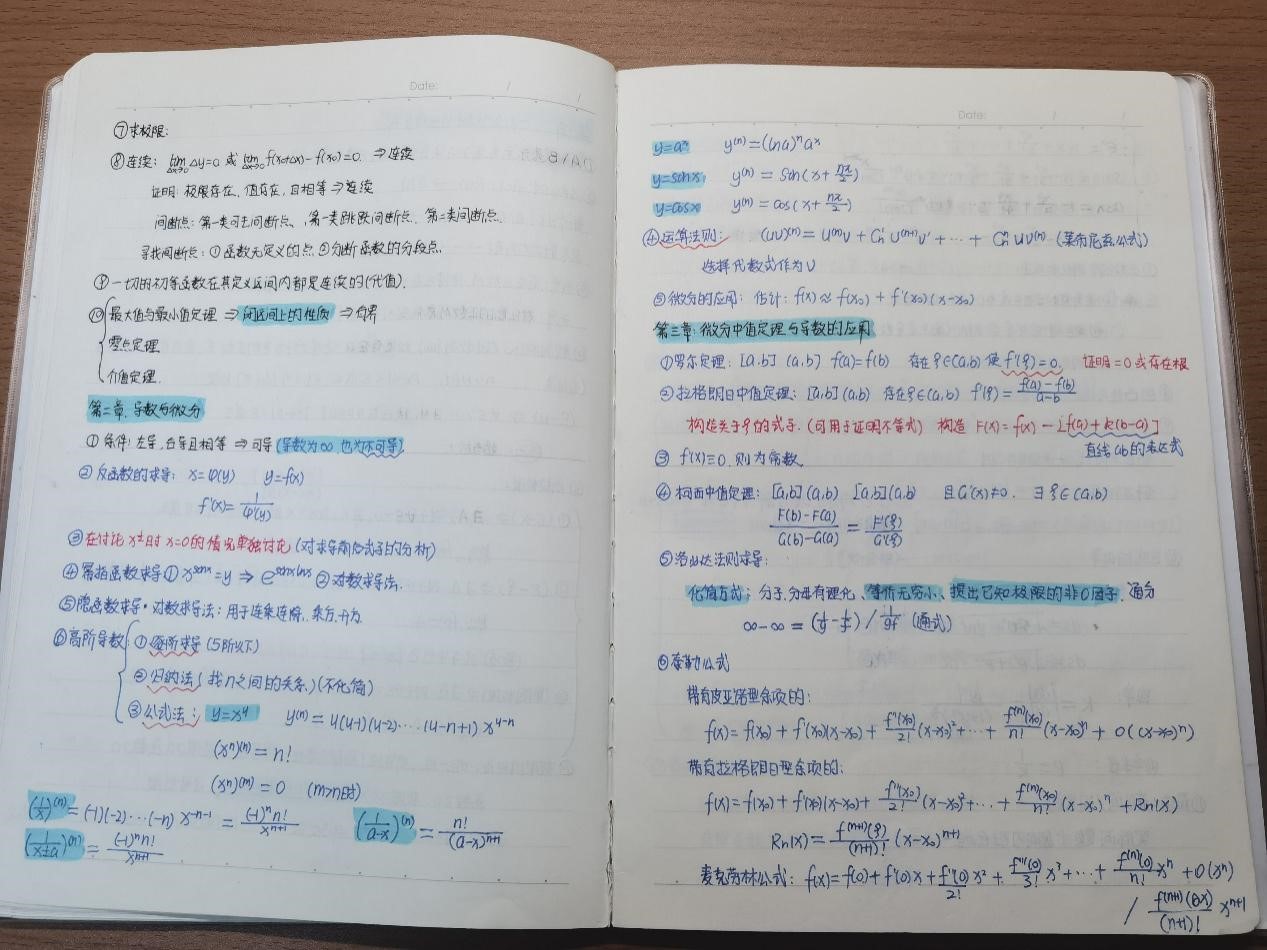 Date: / /
⑦求极限:
⑧连续: lim_{Δx→0} Δy=0 或 lim_{Δx→0} f(x₀+Δx)-f(x₀)=0. ⇒连续
证明: 极限存在、值存在,且相等⇒连续
间断点: 第一类可去间断点、第一类跳跃间断点、第二类间断点.
寻找间断点: ①函数无定义的点 ②分断函数的分段点.
⑨一切的初等函数在其定义区间内都是连续的(代值).
⑩ 最大值与最小值定理 ⇒ 闭区间上的性质 ⇒有界
零点定理
介值定理.
第二章. 导数与微分
①条件: 左导,右导且相等 ⇒ 可导 (导数为∞, 也为不可导)
②反函数的求导: x=φ(y) y=f(x)
f'(x)= 1/φ'(y)
③在讨论 x^± 时 x=0的情况单独讨论 (对求导前后式子的分析)
④幂指函数求导 ① x^{sinx}=y ⇒ e^{sinxlnx} ②对数求导法.
⑤隐函数求导·对数求导法: 用于连乘连除、乘方.开方.
⑥高阶导数 ①逐阶求导 (5阶以下)
②归纳法 (找n之间的关系)(不化简)
③公式法: y=x^u y^{(n)}=u(u-1)(u-2)····(u-n+1) x^{u-n}
(x^n)^{(n)} = n!
(x^n)^{(m)} = 0 (m>n时)
(1/x)^{(n)} = (-1)(-2)...(-n) x^{-n-1} = (-1)^n n!/x^{n+1} (1/(a-x))^{(n)} = n!/(a-x)^{n+1}
(1/(x±a))^{(n)} = (-1)^n n!/x^{n+1}
Date: / /
y=a^x y^{(n)}=(lna)^n a^x
y=sinx y^{(n)} = sin(x+nπ/2)
y=cosx y^{(n)} = cos(x+nπ/2)
④运算法则: (uv)^{(n)} = u^{(n)}v + C_n^1 u^{(n-1)}v' + ··· + C_n^n uv^{(n)} (莱布尼兹公式)
选择代数式作为v
⑤微分的应用: 估计: f(x)≈f(x₀)+f'(x₀)(x-x₀)
第三章: 微分中值定理与导数的应用
①罗尔定理: [a,b] (a,b) f(a)=f(b) 存在ξ∈(a,b)使f'(ξ)=0. 证明=0或存在根
②拉格朗日中值定理: [a,b] (a,b) 存在ξ∈(a,b) f'(ξ)= (f(a)-f(b))/(a-b)
构造关于ξ的式子.(可用于证明不等式) 构造 F(x)=f(x)-[f(a)+k(b-a)]
直线ab的表达式
③ f'(x)≡0. 则为常数.
④柯西中值定理: [a,b](a,b) [a,b](a,b) 且G'(x)≠0. ∃ξ∈(a,b)
(F(b)-F(a))/(G(b)-G(a)) = F'(ξ)/G'(ξ)
⑤洛必达法则求导:
化简方式: 分子.分母有理化、等价无穷小、提出已知极限的非0因子. 通分
⑥泰勒公式
带有皮亚诺型余项的:
f(x)=f(x₀)+f'(x₀)(x-x₀)+ f''(x₀)/2! (x-x₀)²+···+ f^{(n)}(x₀)/n! (x-x₀)^n + o((x-x₀)^n)
带有拉格朗日型余项的:
f(x)=f(x₀)+f'(x₀)(x-x₀)+ f''(x₀)/2! (x-x₀)²+···+ f^{(n)}(x₀)/n! (x-x₀)^n + Rn(x)
Rn(x)= f^{(n+1)}(ξ)/(n+1)! (x-x₀)^{n+1}
麦克劳林公式: f(x)=f(0)+f'(0)x+ f''(0)/2! x² + f'''(0)/3! x³+···+ f^{(n)}(0)/n! x^n + o(x^n)
/ f^{(n+1)}(θx)/(n+1)! x^{n+1}